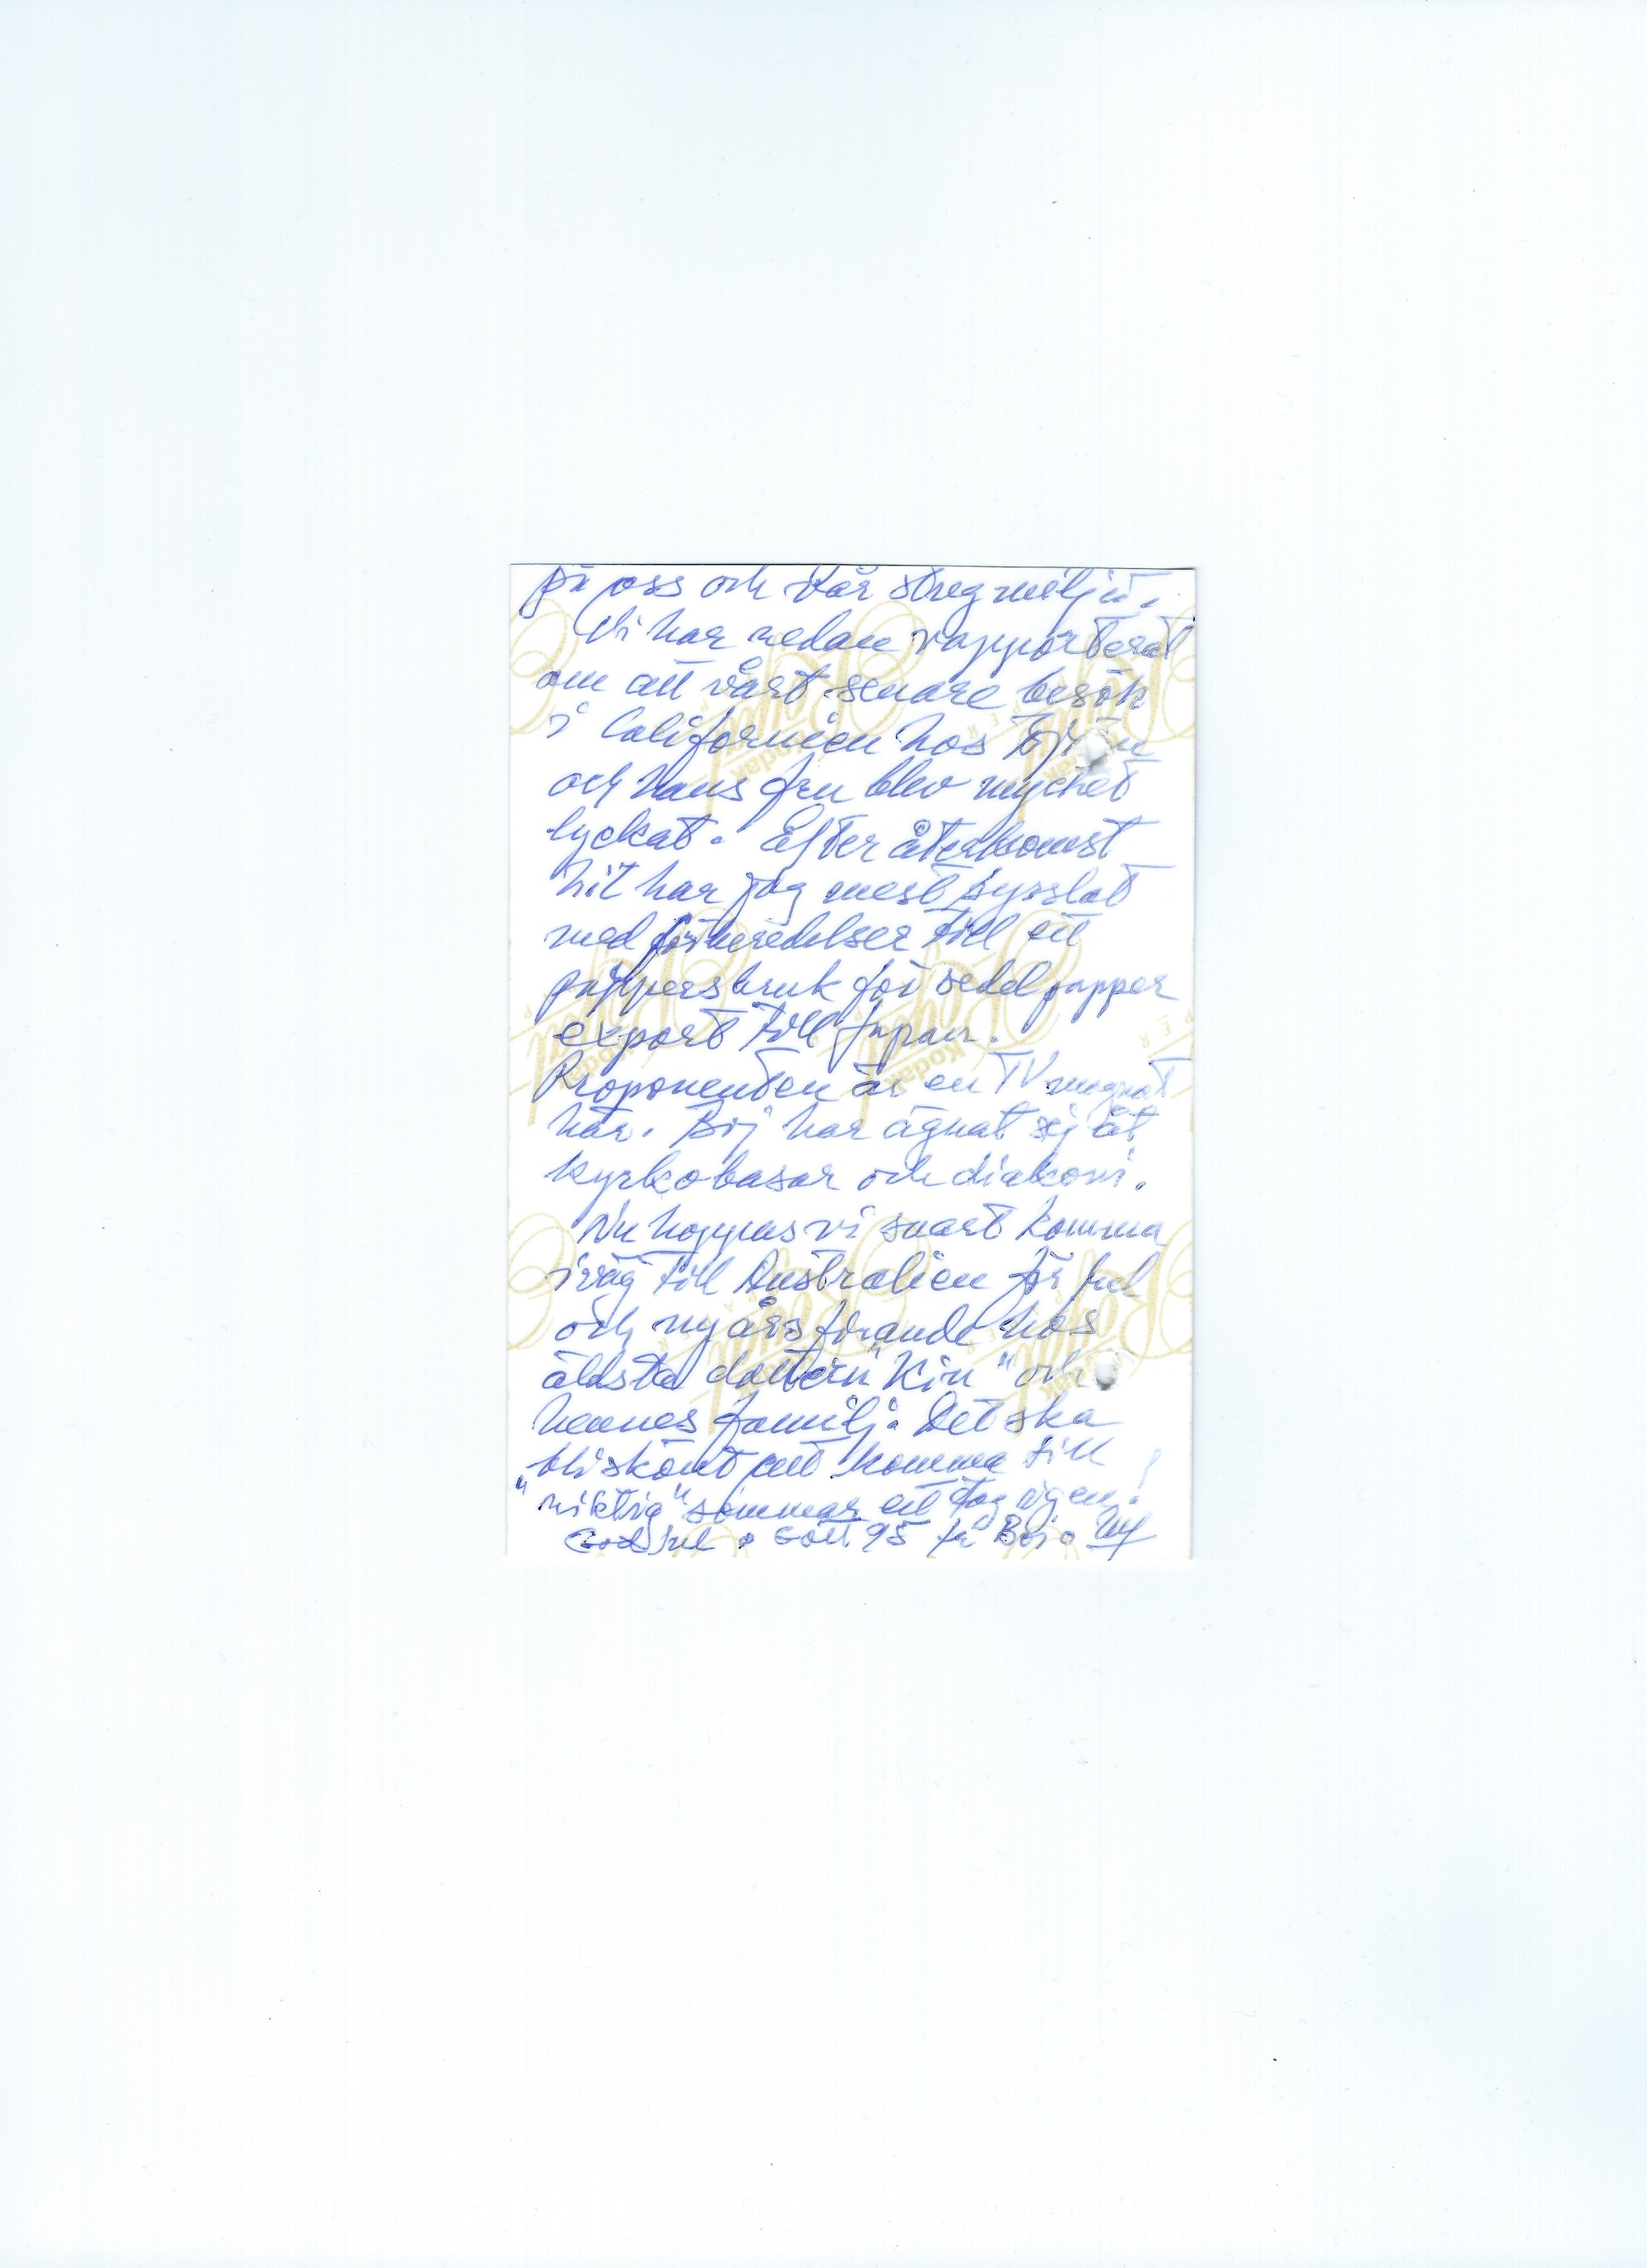 på oss och vår stugmiljö.
Vi har redan rapporterat
om att vårt senare besök
i Californien hos
och hans fru blev mycket
lyckat. Efter återkomst
hit har jag mest sysslat
med förberedelser till ett
pappersbruk för sedelpapper
export till Japan.
Proponenten är en TV magnat
här. Boj har ägnat sig åt
kyrkobasar och diakoni.
Nu hoppas vi snart komma
iväg till Australien för jul
och nyårsfirande hos
äldsta dottern "Kin" och
hennes familj. Det ska
bli skönt att komma till
"riktig" sommar ett tag igen!
God Jul o Gott 95 fr Boj o Ulf